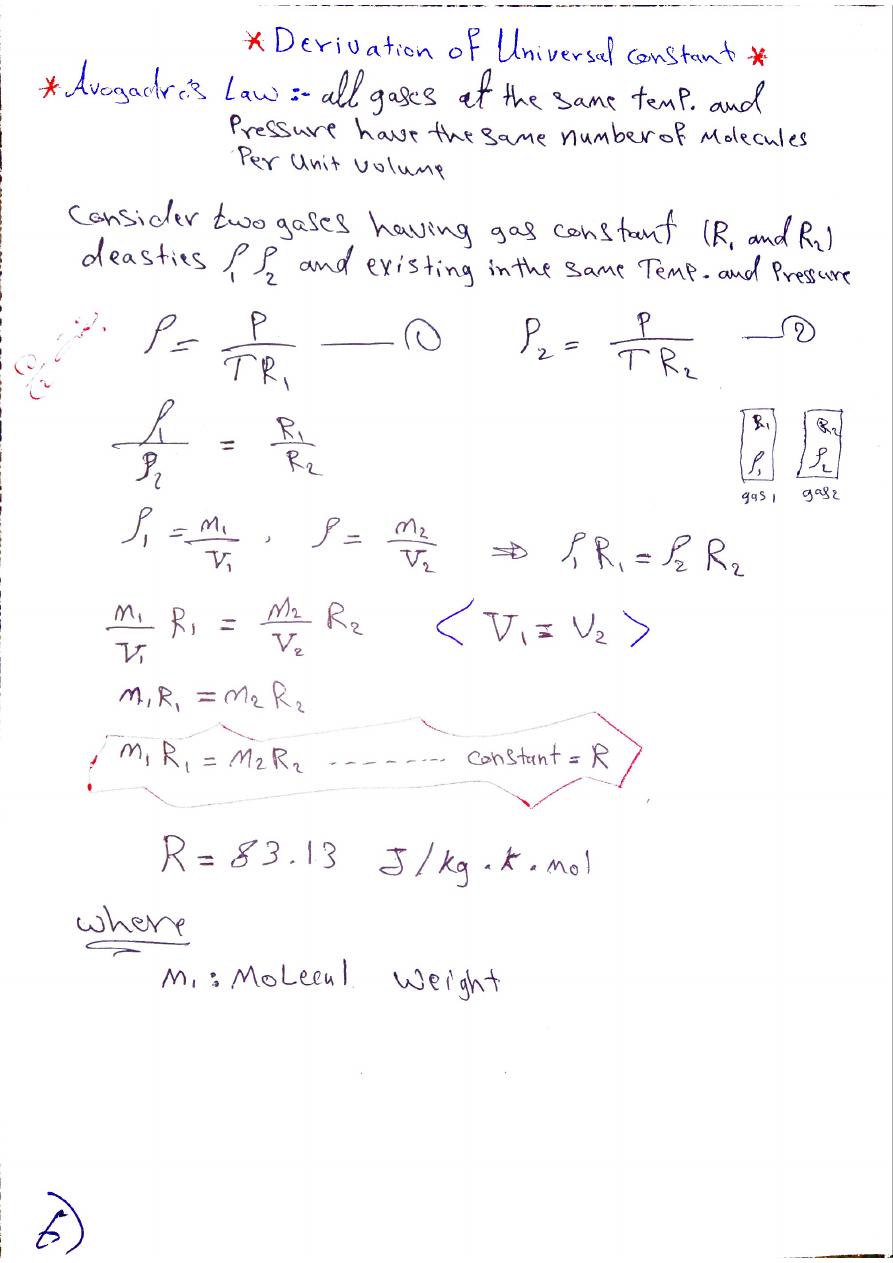 * Derivation of Universal constant *
* Avogadro's Law :- all gases at the same temp. and
Pressure have the same number of Molecules
Per Unit volume
Consider two gases having gas constant (R₁ and R₂)
deasties ρ₁ ρ₂ and existing in the same Temp. and Pressure
ρ = P / T R₁ —— ① ρ₂ = P / T R₂ —— ②
ρ₁ / ρ₂ = R₁ / R₂
R₁ R₂
ρ₁ ρ₂
gas 1 gas 2
ρ₁ = m₁ / V₁ , ρ = m₂ / V₂ ⇒ ρ₁ R₁ = ρ₂ R₂
m₁ / V₁ R₁ = m₂ / V₂ R₂ < V₁ = V₂ >
m₁ R₁ = m₂ R₂
m₁ R₁ = m₂ R₂ ------- constant = R
R = 83.13 J/kg.k.mol
where
m₁ : MoLecul Weight
6)